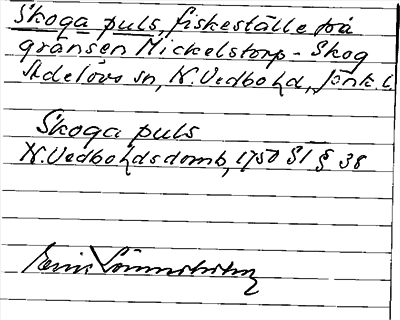 Skoga puls, fiskeställe på
gränsen Mickelstorp - Skog
Adelövs sn, N. Vedbo hd, Jönk. l.
Skoga puls
N. Vedbo hds domb, 1750 S1 § 38